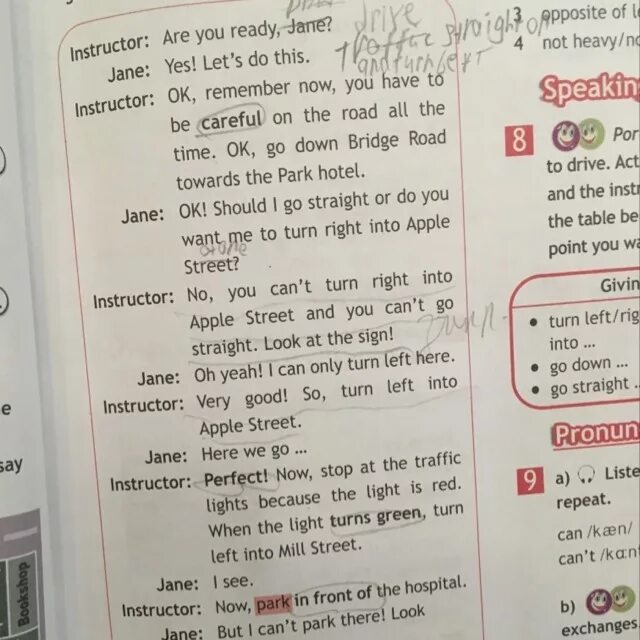 drive
Instructor: Are you ready, Jane?
traffic straight on
Jane: Yes! Let's do this.
and turn left
Instructor: OK, remember now, you have to
be careful on the road all the
time. OK, go down Bridge Road
towards the Park hotel.
Jane: OK! Should I go straight or do you
want me to turn right into Apple
Street?
Instructor: No, you can't turn right into
Apple Street and you can't go
straight. Look at the sign!
Jane: Oh yeah! I can only turn left here.
Instructor: Very good! So, turn left into
Apple Street.
Jane: Here we go ...
Instructor: Perfect! Now, stop at the traffic
lights because the light is red.
When the light turns green, turn
left into Mill Street.
Jane: I see.
Instructor: Now, park in front of the hospital.
Jane: But I can't park there! Look
3 opposite of
4 not heavy/
Speakin
8 Por
to drive. Act
and the inst
the table be
point you wa
Givin
• turn left/rig
into ...
• go down ...
• go straight
Pronun
9 a) Liste
repeat.
can /kæn/
can't /kɑːn
b)
exchanges
e
say
Bookshop